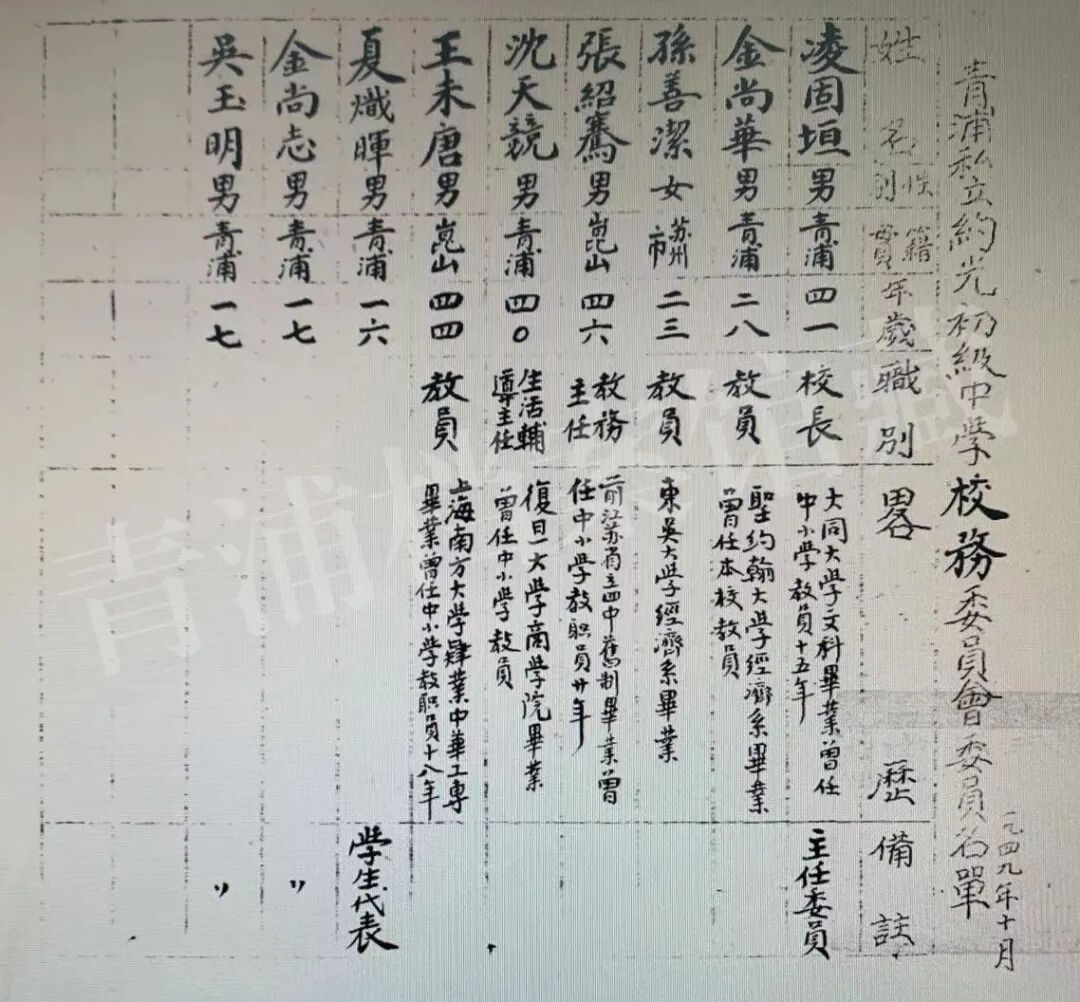 青浦私立約光初級中學校務委員會委員名單
一九四九年十月
姓名 性別 籍貫 年歲 職別 畧歷 備註
凌固垣 男 青浦 四一 校長 大同大学文科畢業曾任
中小学教員十五年 主任委員
金尚華 男 青浦 二八 教員 聖約翰大学經濟系畢業
曾任本校教員
孫善潔 女 蘇州市 二三 教員 東吳大学經濟系畢業
張紹騫 男 崑山 四六 教務主任 前江苏省立四中舊制畢業曾
任中小学教职員廿年
沈天競 男 青浦 四〇 生活輔導主任 復旦大学商学院畢業
曾任中小学教員
王未唐 男 崑山 四四 教員 上海南方大学肄業中華工專
畢業曾任中小学教职員十八年
夏熾暉 男 青浦 一六 学生代表
金尚志 男 青浦 一七 〃
吳玉明 男 青浦 一七 〃
青浦档案馆藏